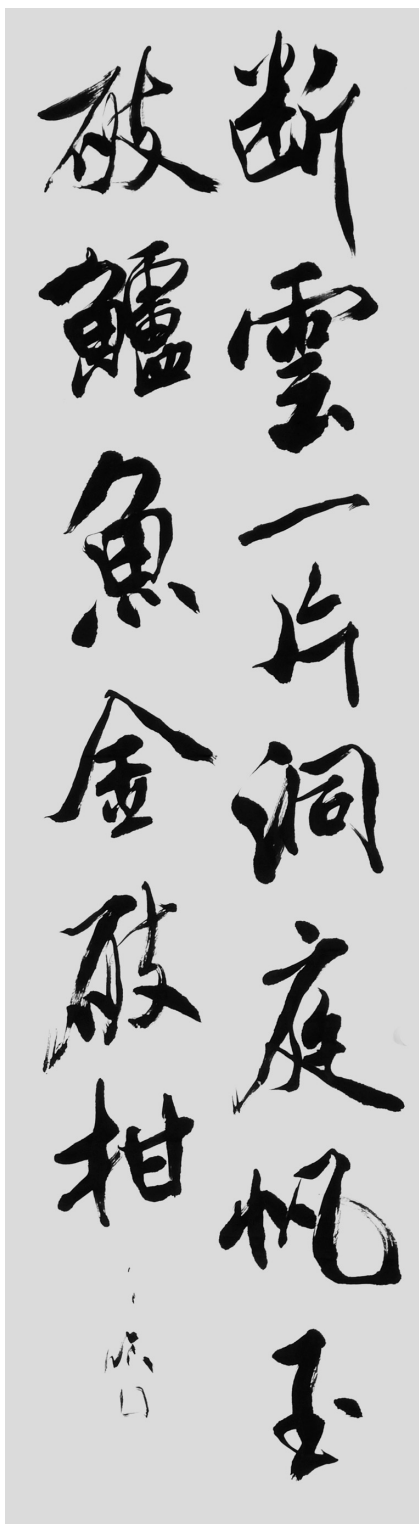 断雲一片洞庭帆玉
破鱸魚金破柑